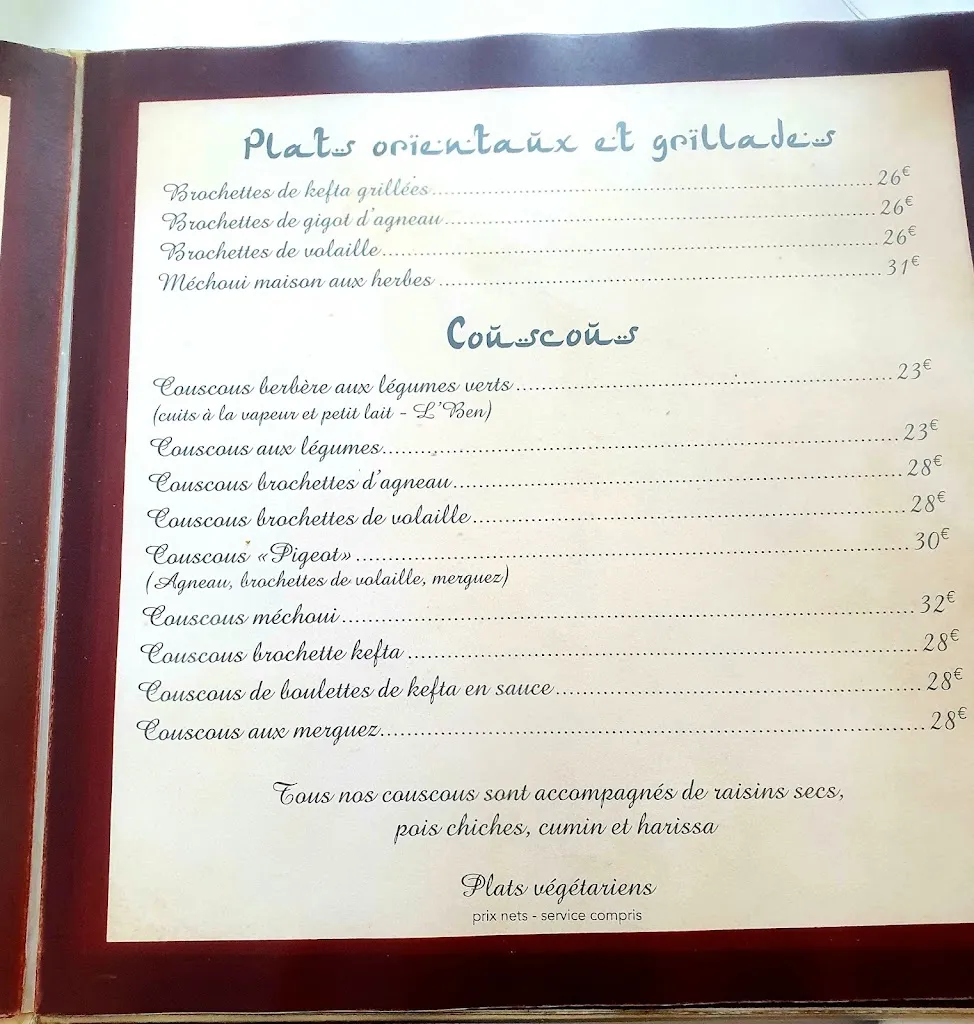 Plats orïentaŭx et grïllades
Brochettes de kefta grillées........26€
Brochettes de gigot d'agneau........26€
Brochettes de volaille........26€
Méchoui maison aux herbes........31€
Coŭscoŭs
Couscous berbère aux légumes verts........23€
(cuits à la vapeur et petit lait - L'Ben)
Couscous aux légumes........23€
Couscous brochettes d'agneau........28€
Couscous brochettes de volaille........28€
Couscous «Pigeot»........30€
(Agneau, brochettes de volaille, merguez)
Couscous méchoui........32€
Couscous brochette kefta........28€
Couscous de boulettes de kefta en sauce........28€
Couscous aux merguez........28€
Tous nos couscous sont accompagnés de raisins secs,
pois chiches, cumin et harissa
Plats végétariens
prix nets - service compris